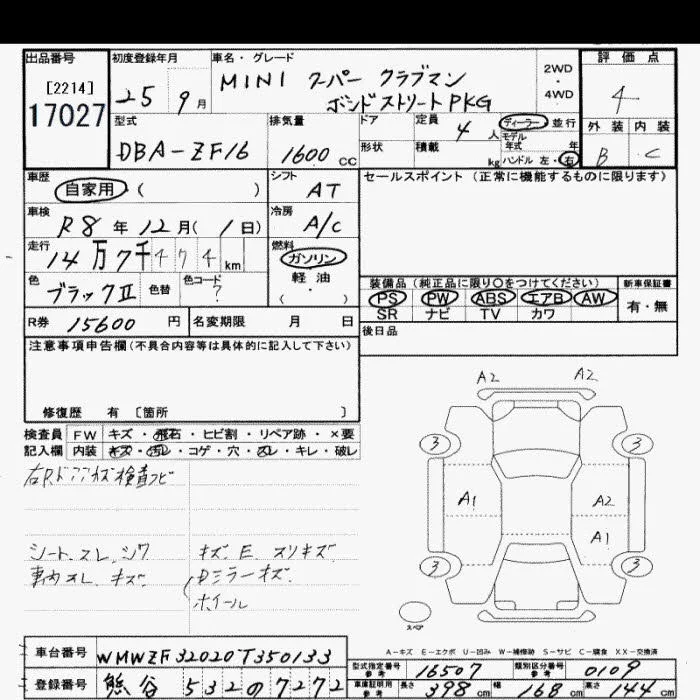 出品番号
[2214]
17027
初度登録年月
25 9月
車名・グレード
MINI クーパー クラブマン
ボンドストリートPKG
2WD
・
4WD
評価点
4
外装 内装
B C
型式
DBA-ZF16
排気量
1600cc
ドア
形状
定員
4人
積載
kg
ディーラー 並行
モデル
年式 年
ハンドル 左・右
車歴
自家用 ( )
シフト
AT
車検
R8年12月(1日)
冷房
A/C
走行
14万7千474km
燃料
ガソリン
軽油
( ・ )
色
ブラックII
色替
色コード
?
セールスポイント (正常に機能するものに限ります)
装備品(純正品に限り○をつけてください)
PS PW ABS エアB AW
SR ナビ TV カワ
新車保証書
有・無
R券 15600円
名変期限 月 日
後日品
注意事項申告欄(不具合内容等は具体的に記入して下さい)
修復歴 有 [箇所 ]
検査員 FW キズ・飛石・ヒビ割・リペア跡・×要
記入欄 内装 キズ・汚レ・コゲ・穴・スレ・キレ・破レ
シート.スレ.シワ
車内スレ.キズ
キズ.E.スリキズ
Dミラーキズ.
ホイール
A2 A2
3 3
A1 A2
A1
3 3
スペア
A-キズ E-エクボ U-凹み W-補修跡 S-サビ C-腐食 XX-交換済
車台番号 WMWZF32020T350133
登録番号 熊谷 532の7272
型式指定番号
参考
16507
類別区分番号
参考
0109
車庫証明用
参考
長さ 398cm 幅 168cm 高さ 144cm